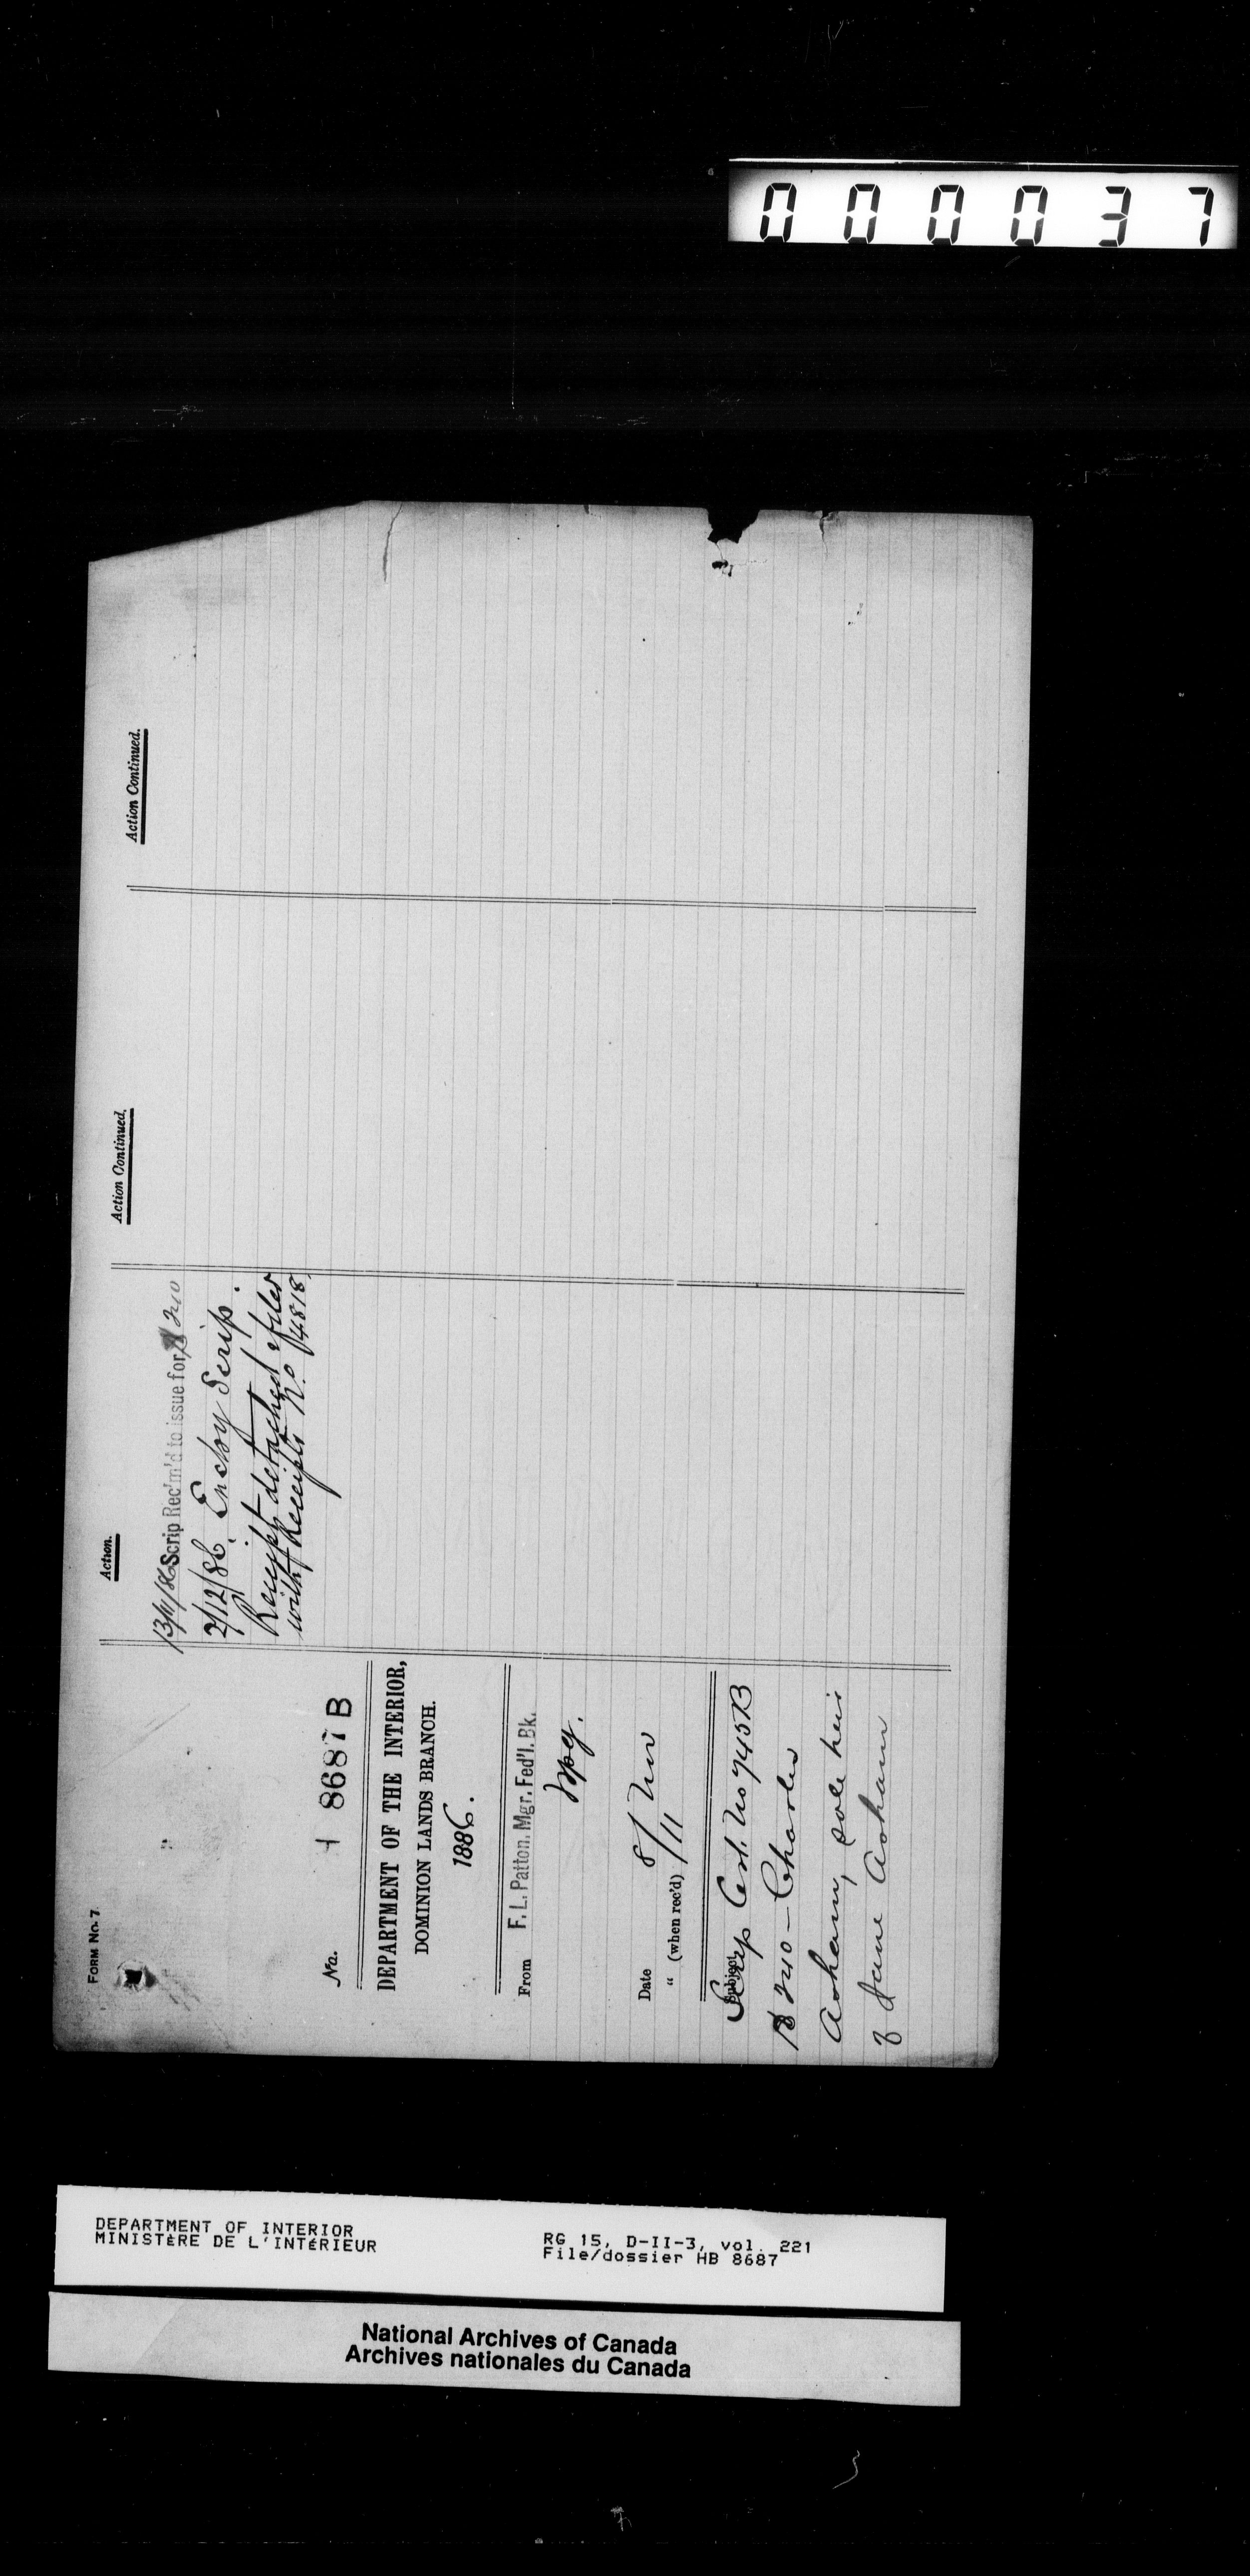 000037
FORM No. 7
No. H 8687 B
DEPARTMENT OF THE INTERIOR,
DOMINION LANDS BRANCH.
1886.
From F. L. Patton, Mgr. Fed'l. Bk.
Wpg.
Date 8/ Nov
" (when rec'd) /11
Subject
Scrip Cert. No 745B
$240 - Charles
Asham, sole heir
of Jane Asham
Action.
13/11/86 Scrip Rec'm'd to issue for $ 240
2/12/86. Encloy Scrip.
Receipt detached & filed
with Receipts No 14818
Action Continued.
Action Continued.
DEPARTMENT OF INTERIOR
MINISTÈRE DE L'INTÉRIEUR
RG 15, D-II-3, vol. 221
File/dossier HB 8687
National Archives of Canada
Archives nationales du Canada